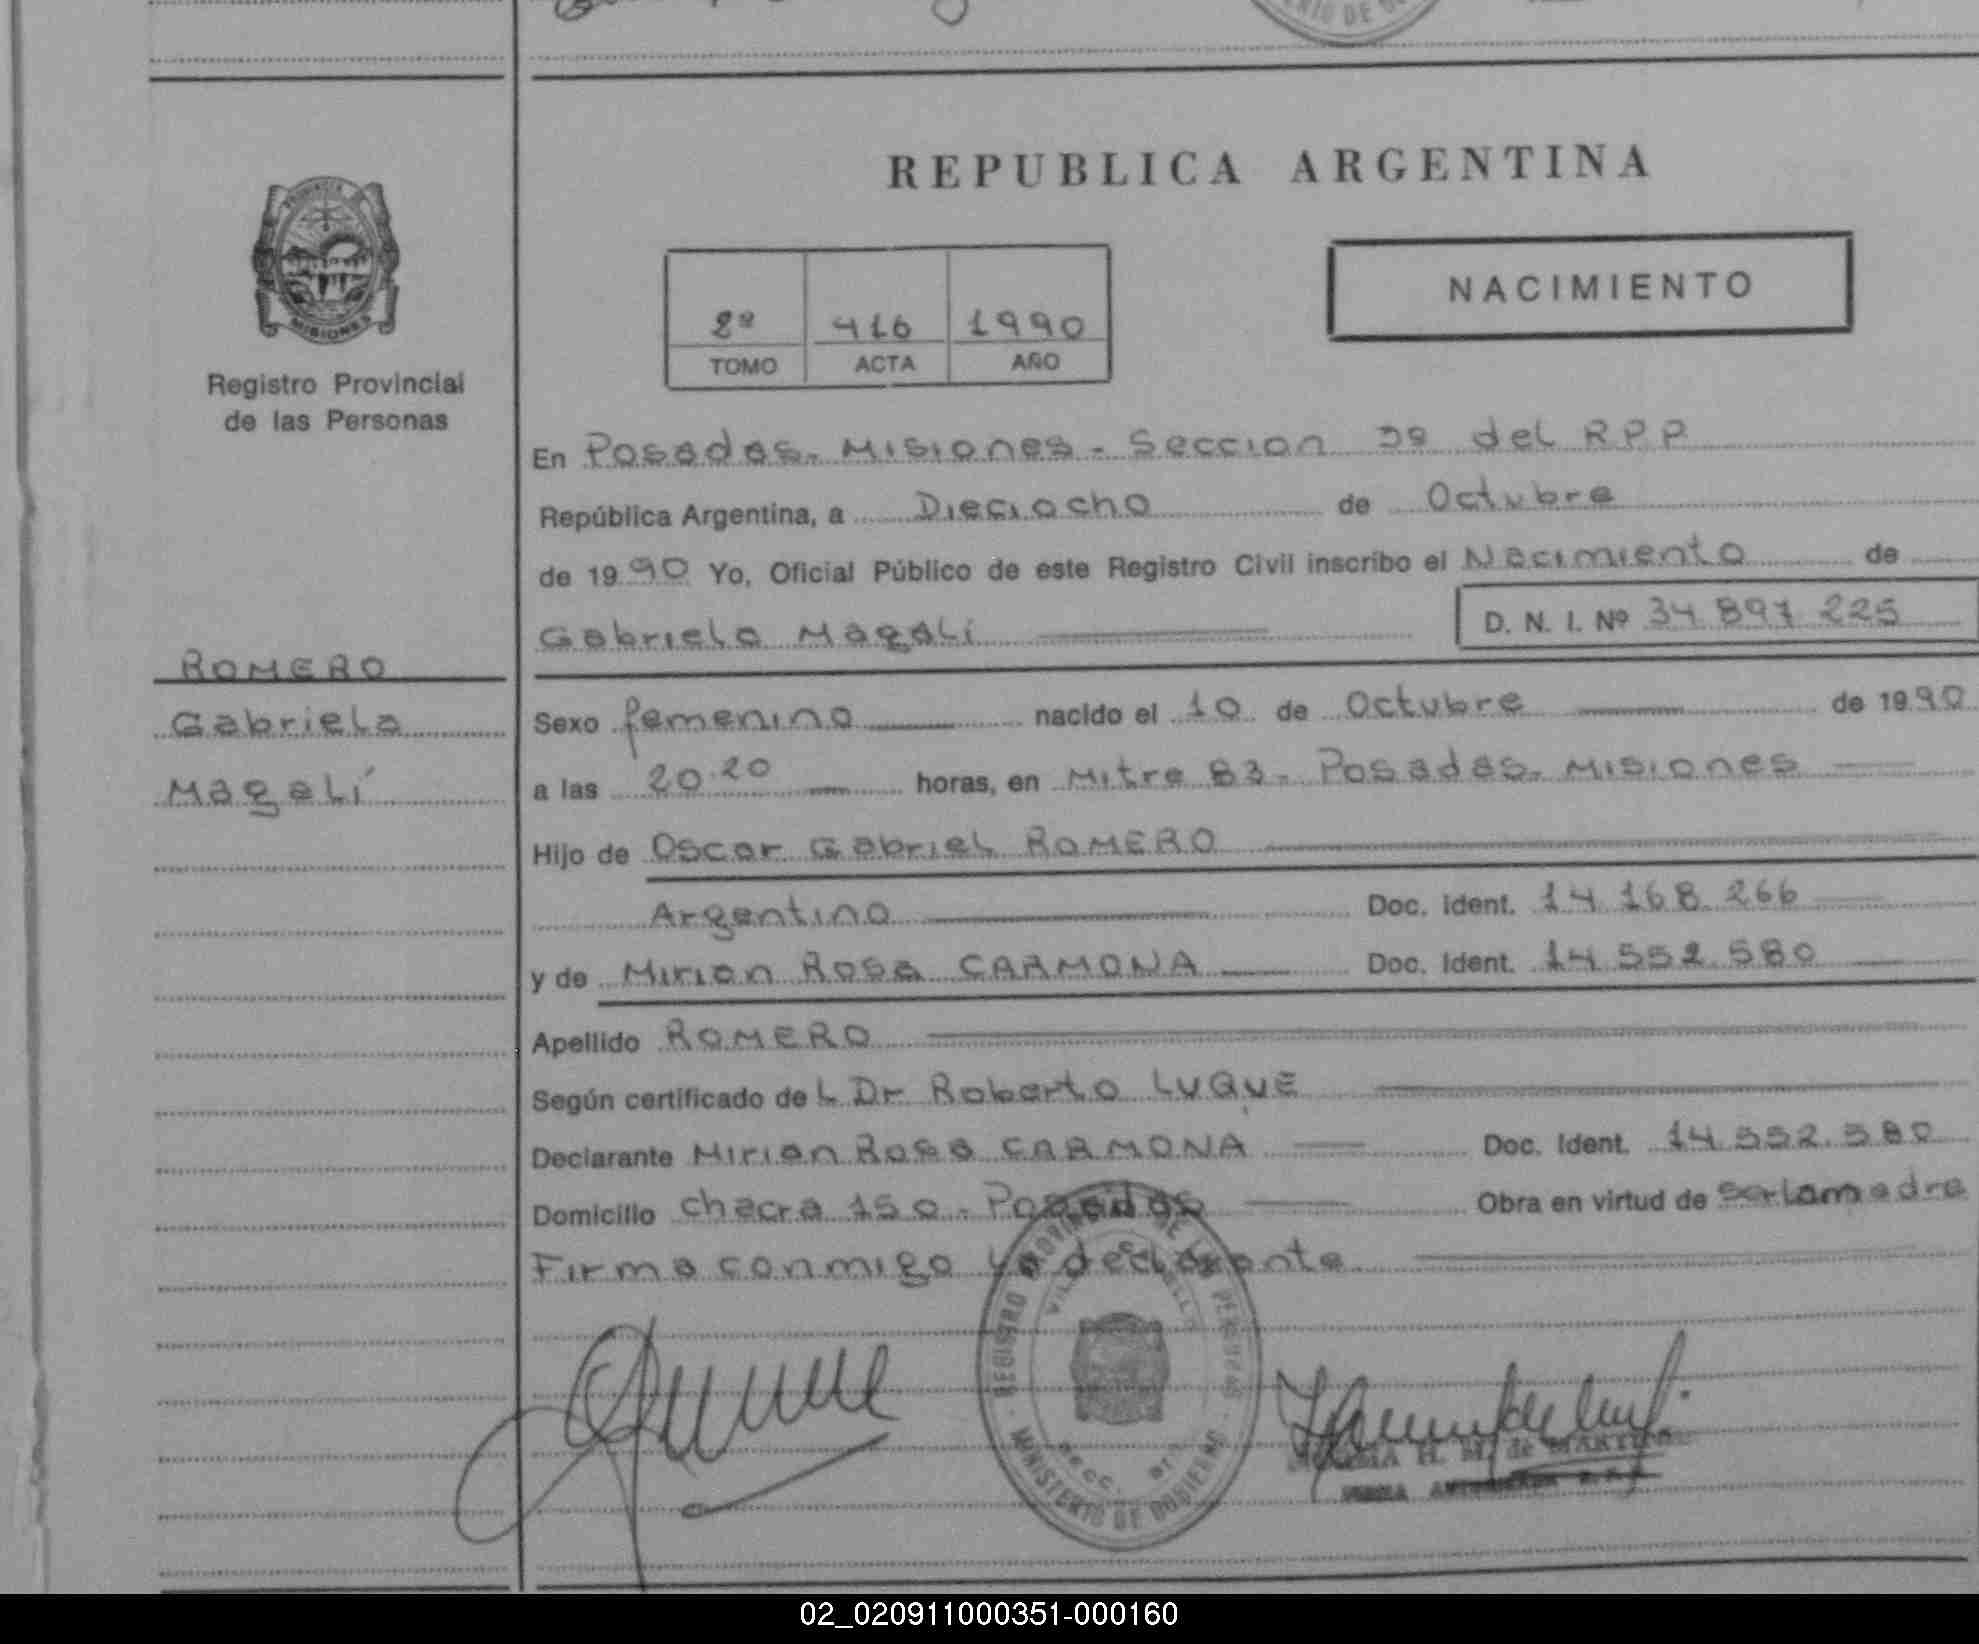 REPUBLICA ARGENTINA
NACIMIENTO
2º 416 1990
TOMO ACTA AÑO
MISIONES
Registro Provincial
de las Personas
En Posadas - Misiones - Seccion 3º del RPP
República Argentina, a Dieciocho de Octubre
de 1990 Yo, Oficial Público de este Registro Civil inscribo el Nacimiento de
Gabriela Magalí
D. N. I. Nº 34 897 225
ROMERO
Gabriela
Magalí
Sexo femenino nacido el 10 de Octubre de 1990
a las 20.20 horas, en Mitre 83 - Posadas - Misiones
Hijo de Oscar Gabriel ROMERO
Argentino Doc. Ident. 14 168 266
y de Mirian Rosa CARMONA Doc. Ident. 14 552 580
Apellido ROMERO
Según certificado de L Dr Roberto LUQUE
Declarante Mirian Rosa CARMONA Doc. Ident. 14.552.580
Domicilio Chacra 150 - Posadas Obra en virtud de ser la madre
Firma conmigo la declarante
REGISTRO PROVINCIAL DE LAS PERSONAS
MINISTERIO DE GOBIERNO
H. M. de MARTINEZ
02_020911000351-000160